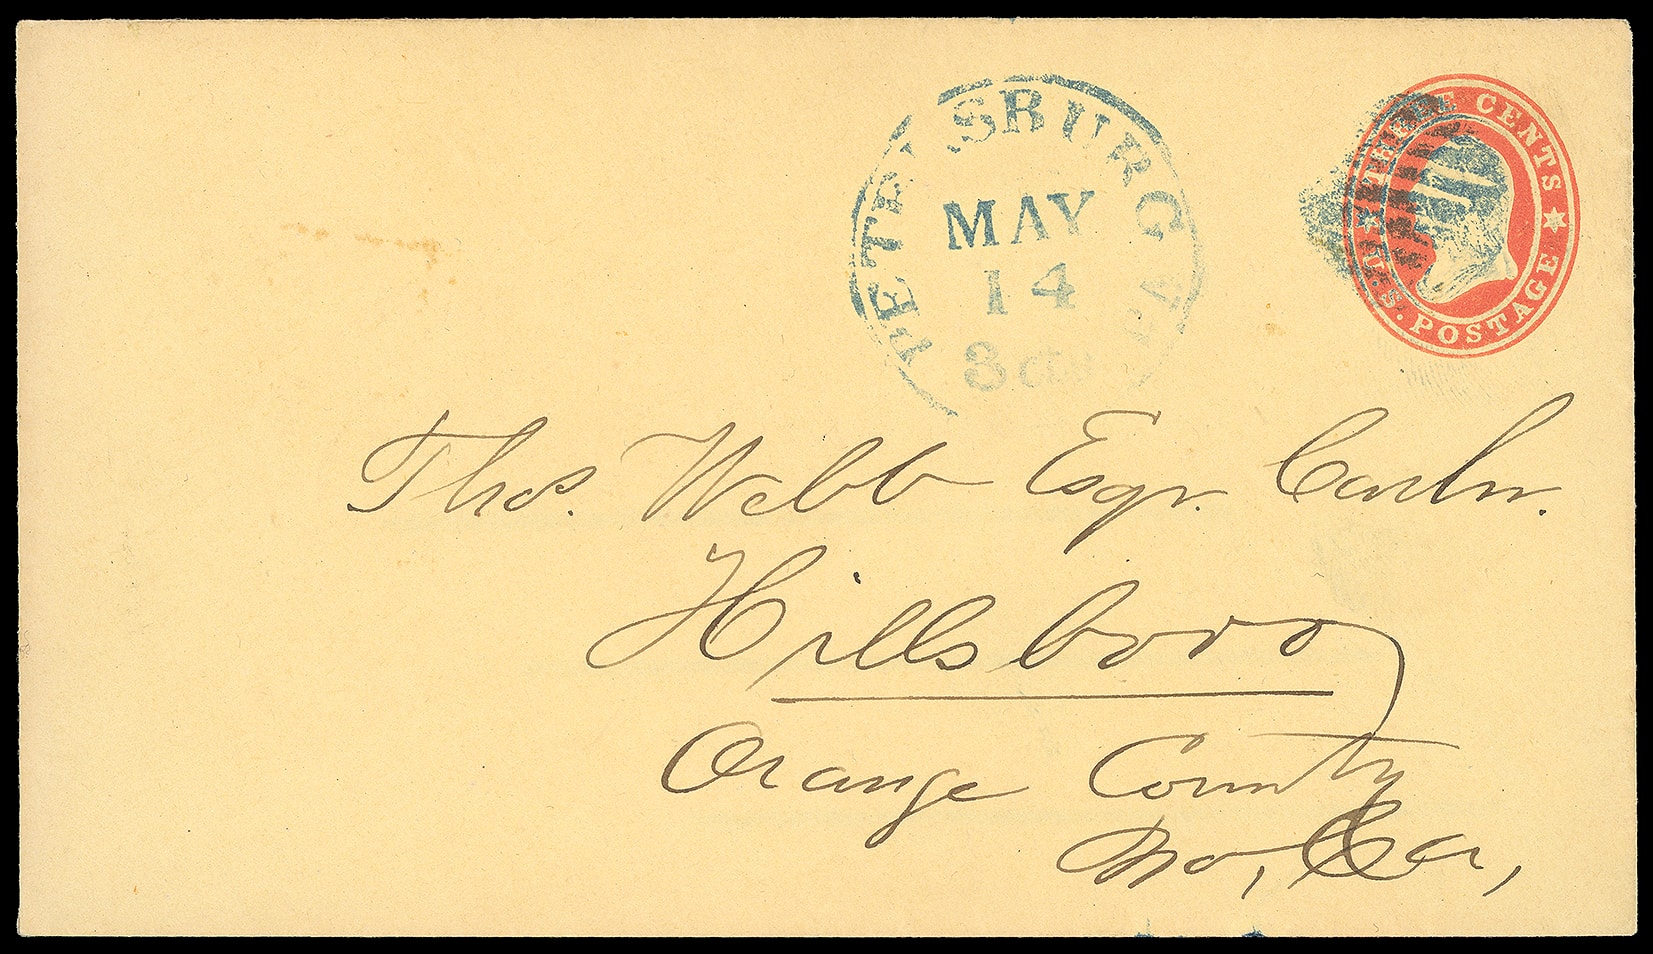 PETERSBURG VA
MAY
14
3cts
THREE CENTS
U.S. POSTAGE
Thos. Webb Esqr. Cashr.
Hillsboro
Orange County
No, Ca,